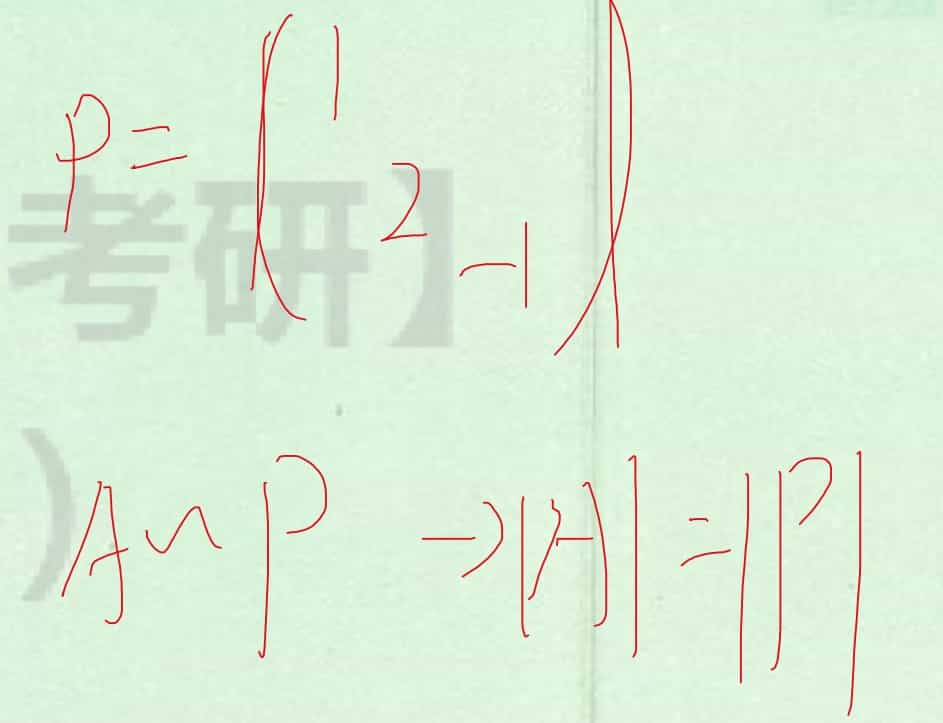 P = ( 1
2
-1 )
考研】
)
A ~ P → |A| = |P|